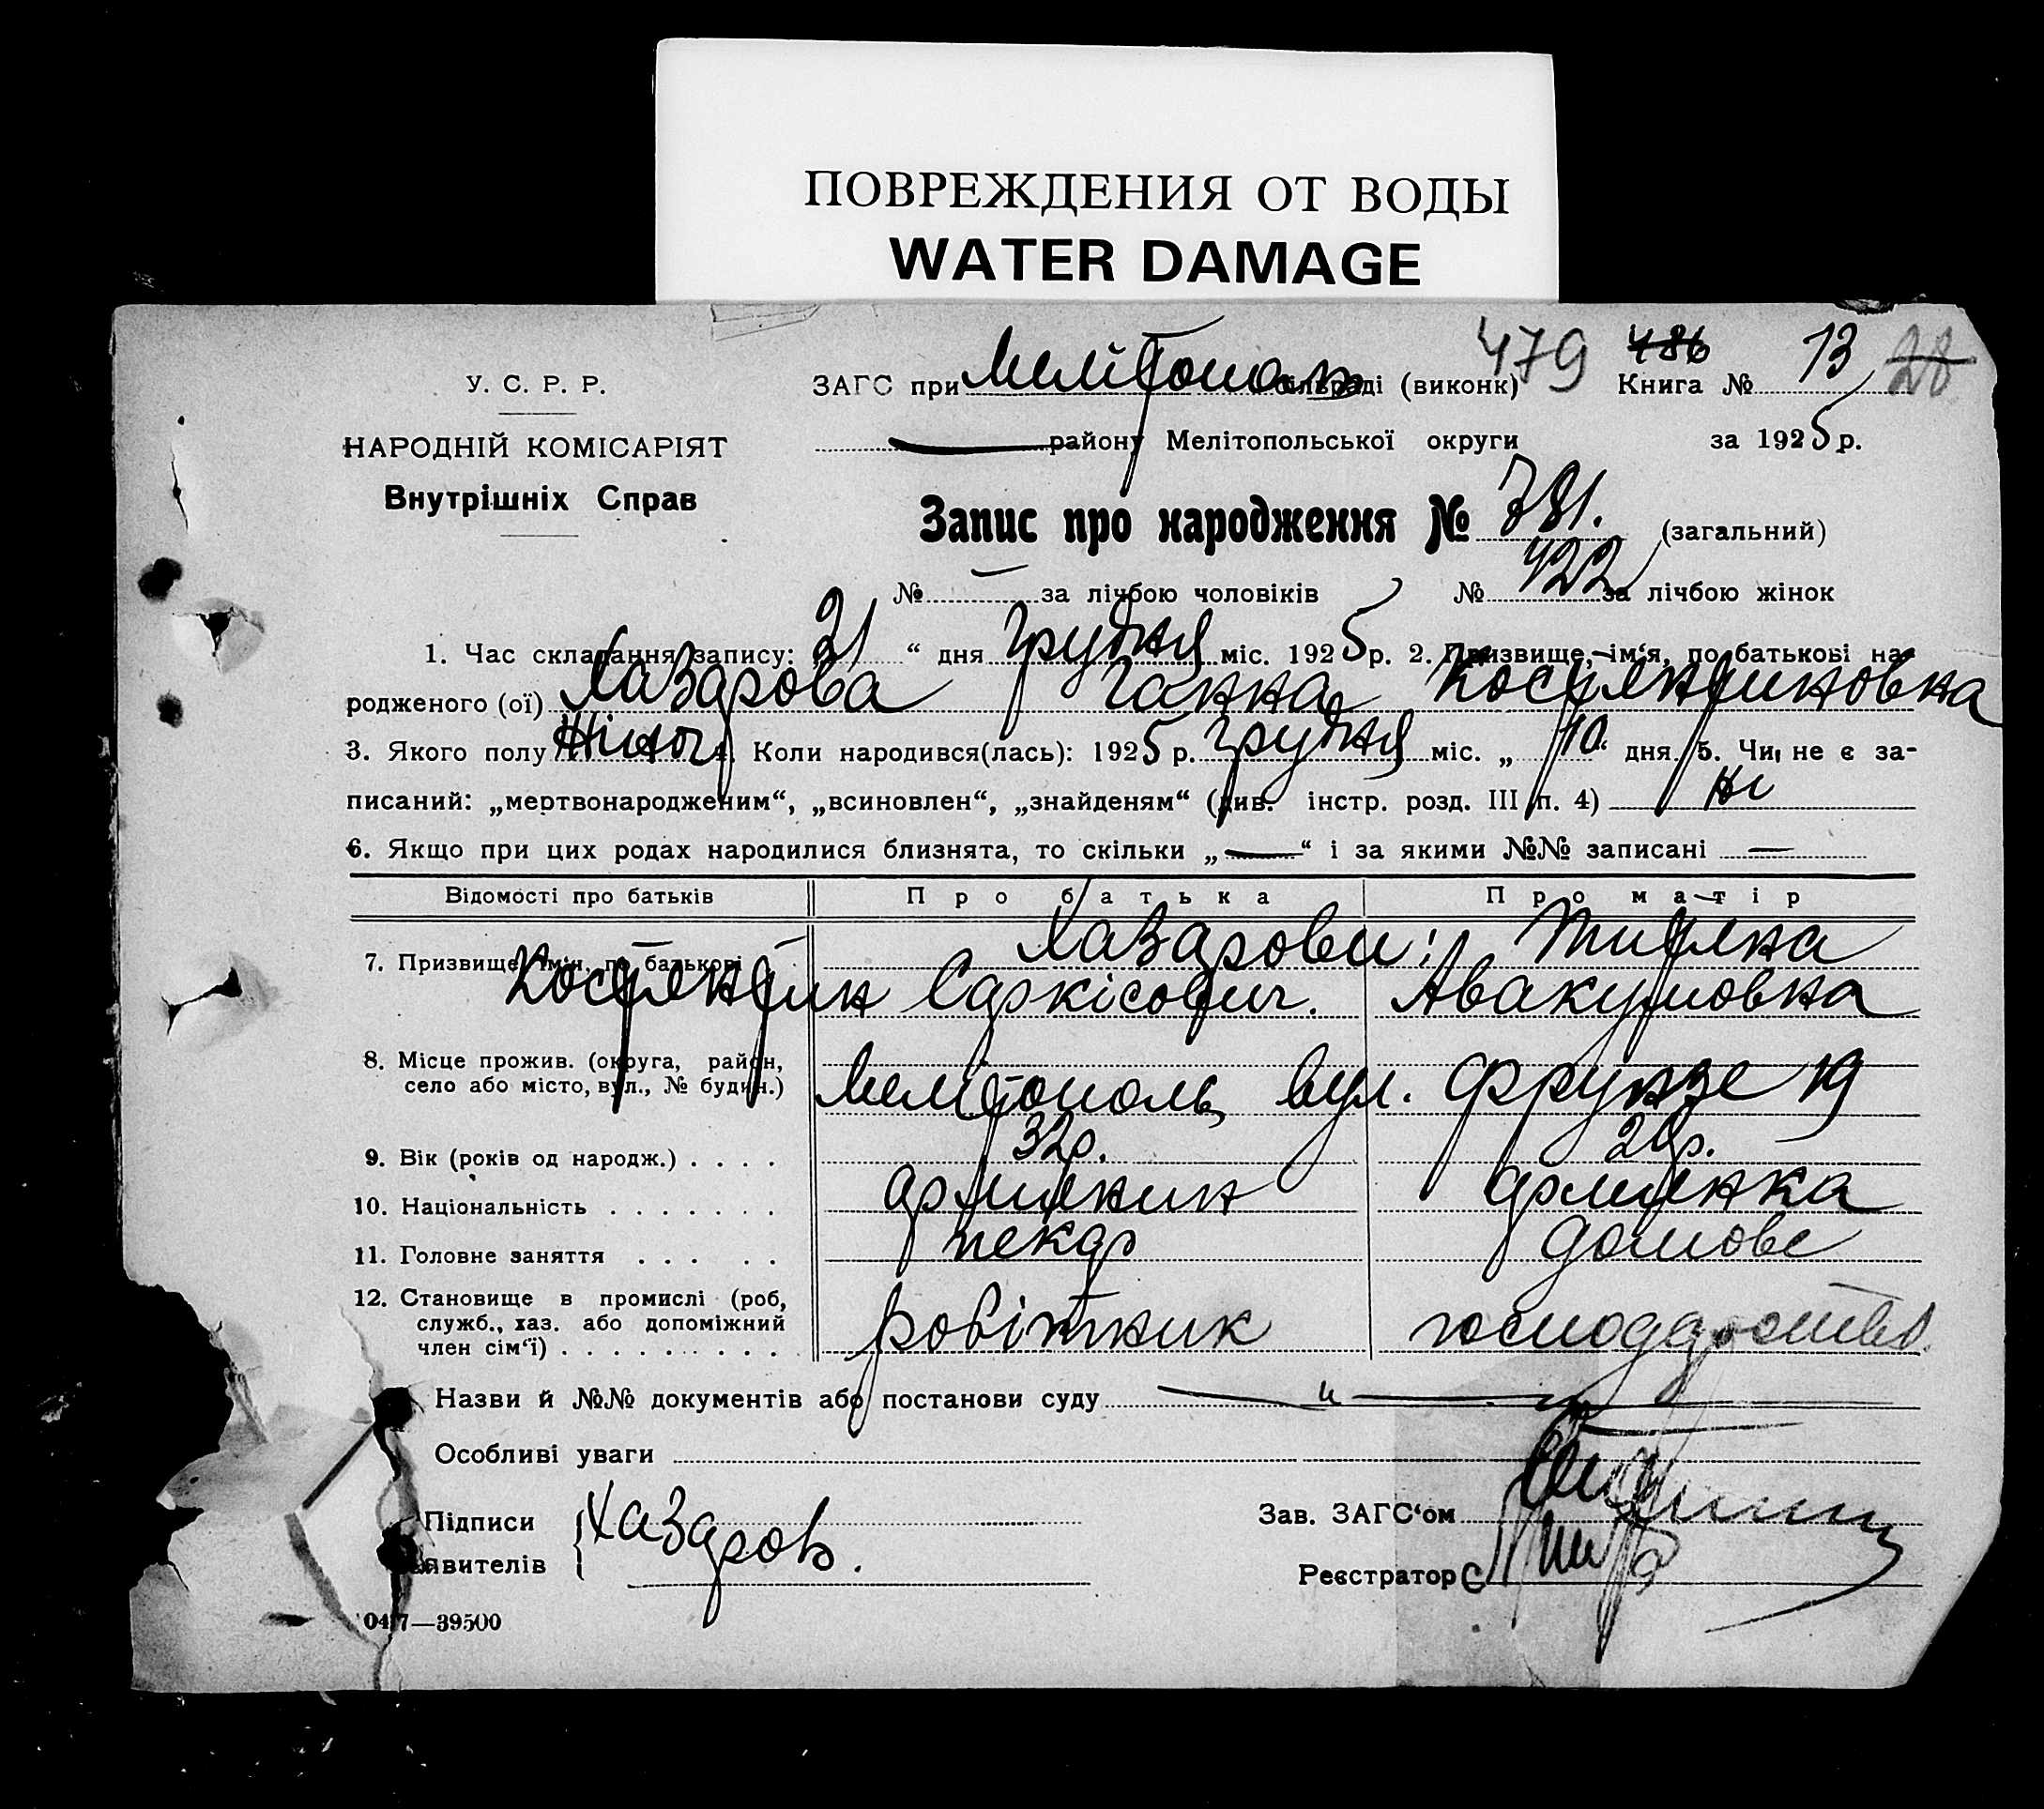 ПОВРЕЖДЕНИЯ ОТ ВОДЫ
WATER DAMAGE
479 486 13 28
У. С. Р. Р.
ЗАГС при Мелітополь сільраді (виконк) Книга №
НАРОДНІЙ КОМІСАРІЯТ
району Мелітопольської округи за 1925 р.
Внутрішніх Справ
Запис про народження № 781. (загальний)
№ — за лічбою чоловіків № 422 за лічбою жінок
1. Час складання запису: 21 “ дня грудня міс. 1925 р. 2. Призвище, ім‘я, по батькові на-
родженого (ої) Хазарова Ганна Костянтиновна
3. Якого полу жіноч 4. Коли народився(лась): 1925 р. грудня міс. „ 10 “ дня. 5. Чи не є за-
писаний: „мертвонародженим“, „всиновлен“, „знайденям“ (див. інстр. розд. III п. 4) ні
6. Якщо при цих родах народилися близнята, то скільки „—“ і за якими №№ записані —
Відомості про батьків Про батька Про матір
7. Призвище, ім‘я, по батькові Хазарови:
Костянтин Саркісович. Авакумовна
8. Місце прожив. (округа, район,
село або місто, вул., № будин.) Мелітополь вул. Фрунзе 19
9. Вік (років од народж.) . . . . 32р.
10. Національність . . . . . . . армянин армянка
11. Головне заняття . . . . . пекар домове
12. Становище в промислі (роб,
служб., хаз. або допоміжний
член сім‘ї) . . . . . . . . . . робітник господарство
Назви й №№ документів або постанови суду — „ —
Особливі уваги
Підписи Хазаров. Зав. ЗАГС‘ом
явителів Реєстратор
0417—39500